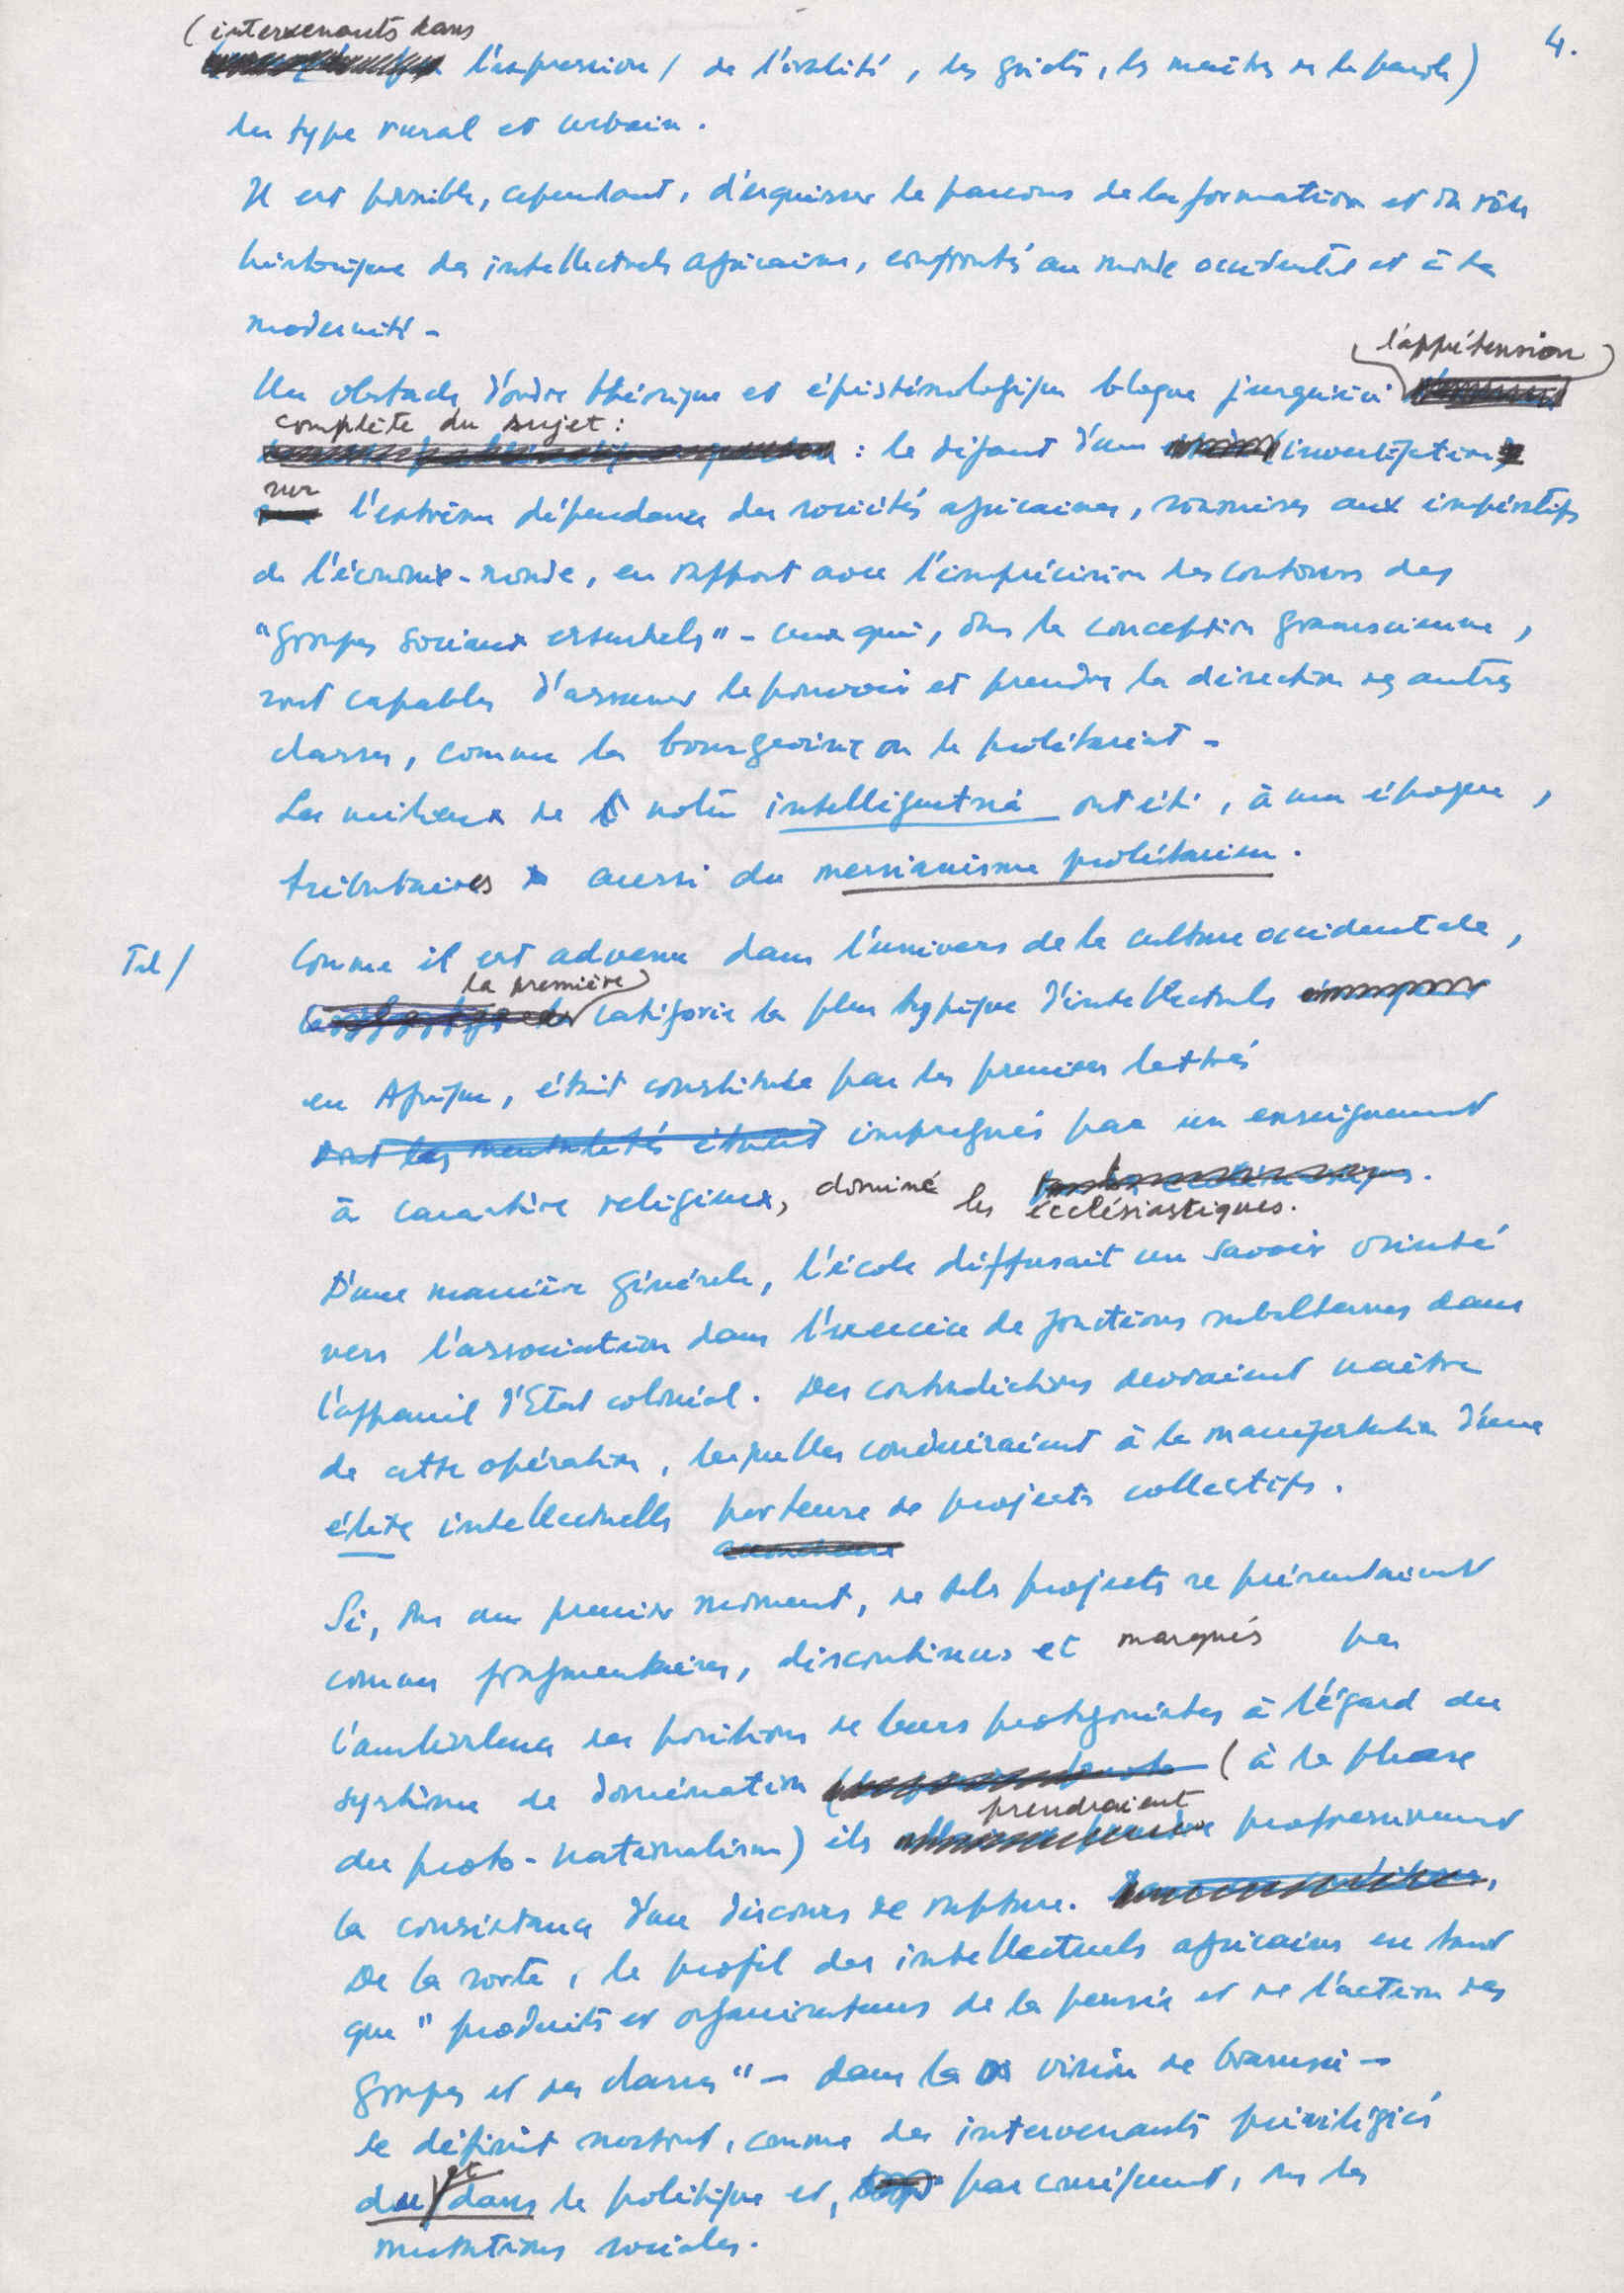 4.
(intervenants dans
l'expression / de l'oralité, les griots, les maîtres de la parole)
du type rural et urbain.
Il est possible, cependant, d'esquisser le parcours de la formation et du rôle
historique des intellectuels africains, confrontés au monde occidental et à la
modernité -
l'appréhension
Un obstacle d'ordre théorique et épistémologique bloque jusqu'ici
complète du sujet :
: le défaut d'une investigation
sur
l'extrême dépendance des sociétés africaines, soumises aux impératifs
de l'économie-monde, en rapport avec l'imprécision des contours des
"groupes sociaux essentiels" - ceux qui, dans la conception gramscienne,
sont capables d'assumer le pouvoir et prendre la direction des autres
classes, comme la bourgeoisie ou le prolétariat -
Les milieux de notre intelliguetsia ont été, à une époque,
tributaires aussi du messianisme prolétarien.
Tel / Comme il est advenu dans l'univers de la culture occidentale,
la première
catégorie la plus typique d'intellectuels
en Afrique, était constituée par les premiers lettrés
imprégnés par un enseignement
à caractère religieux, dominé les
ecclésiastiques.
D'une manière générale, l'école diffusait un savoir orienté
vers l'association dans l'exercice de fonctions subalternes dans
l'appareil d'Etat colonial. Des contradictions devraient naître
de cette opération, lesquelles conduiraient à la manifestation d'une
élite intellectuelle porteuse de projets collectifs.
Si, dans un premier moment, de tels projets se présentaient
comme fragmentaires, discontinus et marqués par
l'ambivalence des positions de leurs protagonistes à l'égard du
système de domination (à la phase
prendraient
du proto-nationalisme) ils progressivement
la consistance d'un discours de rupture.
De la sorte, le profil des intellectuels africains en tant
que "produits et organisateurs de la pensée et de l'action des
groupes et des classes" - dans la vision de Gramsci -
se définit surtout, comme des intervenants privilégiés
et
du / dans le politique et, par conséquent, dans les
mutations sociales.